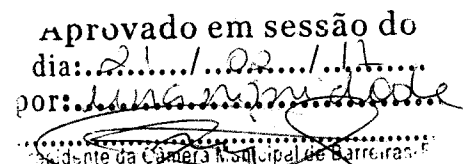 Aprovado em sessão do
dia: 21 / 02 / 17
por: unanimidade
Presidente da Câmera Municipal de Barreiras-